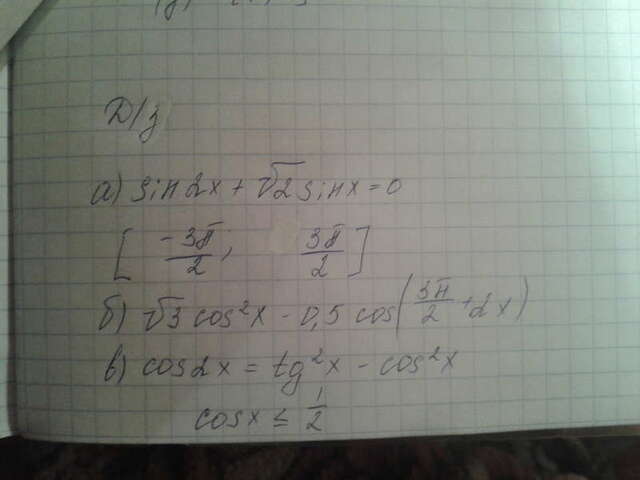 Д/з
а) sin2x + √2 sinx = 0
[ -3π/2 ; 3π/2 ]
б) √3 cos²x - 0,5 cos(3π/2 + 2x)
в) cos2x = tg²x - cos²x
cosx ≤ 1/2